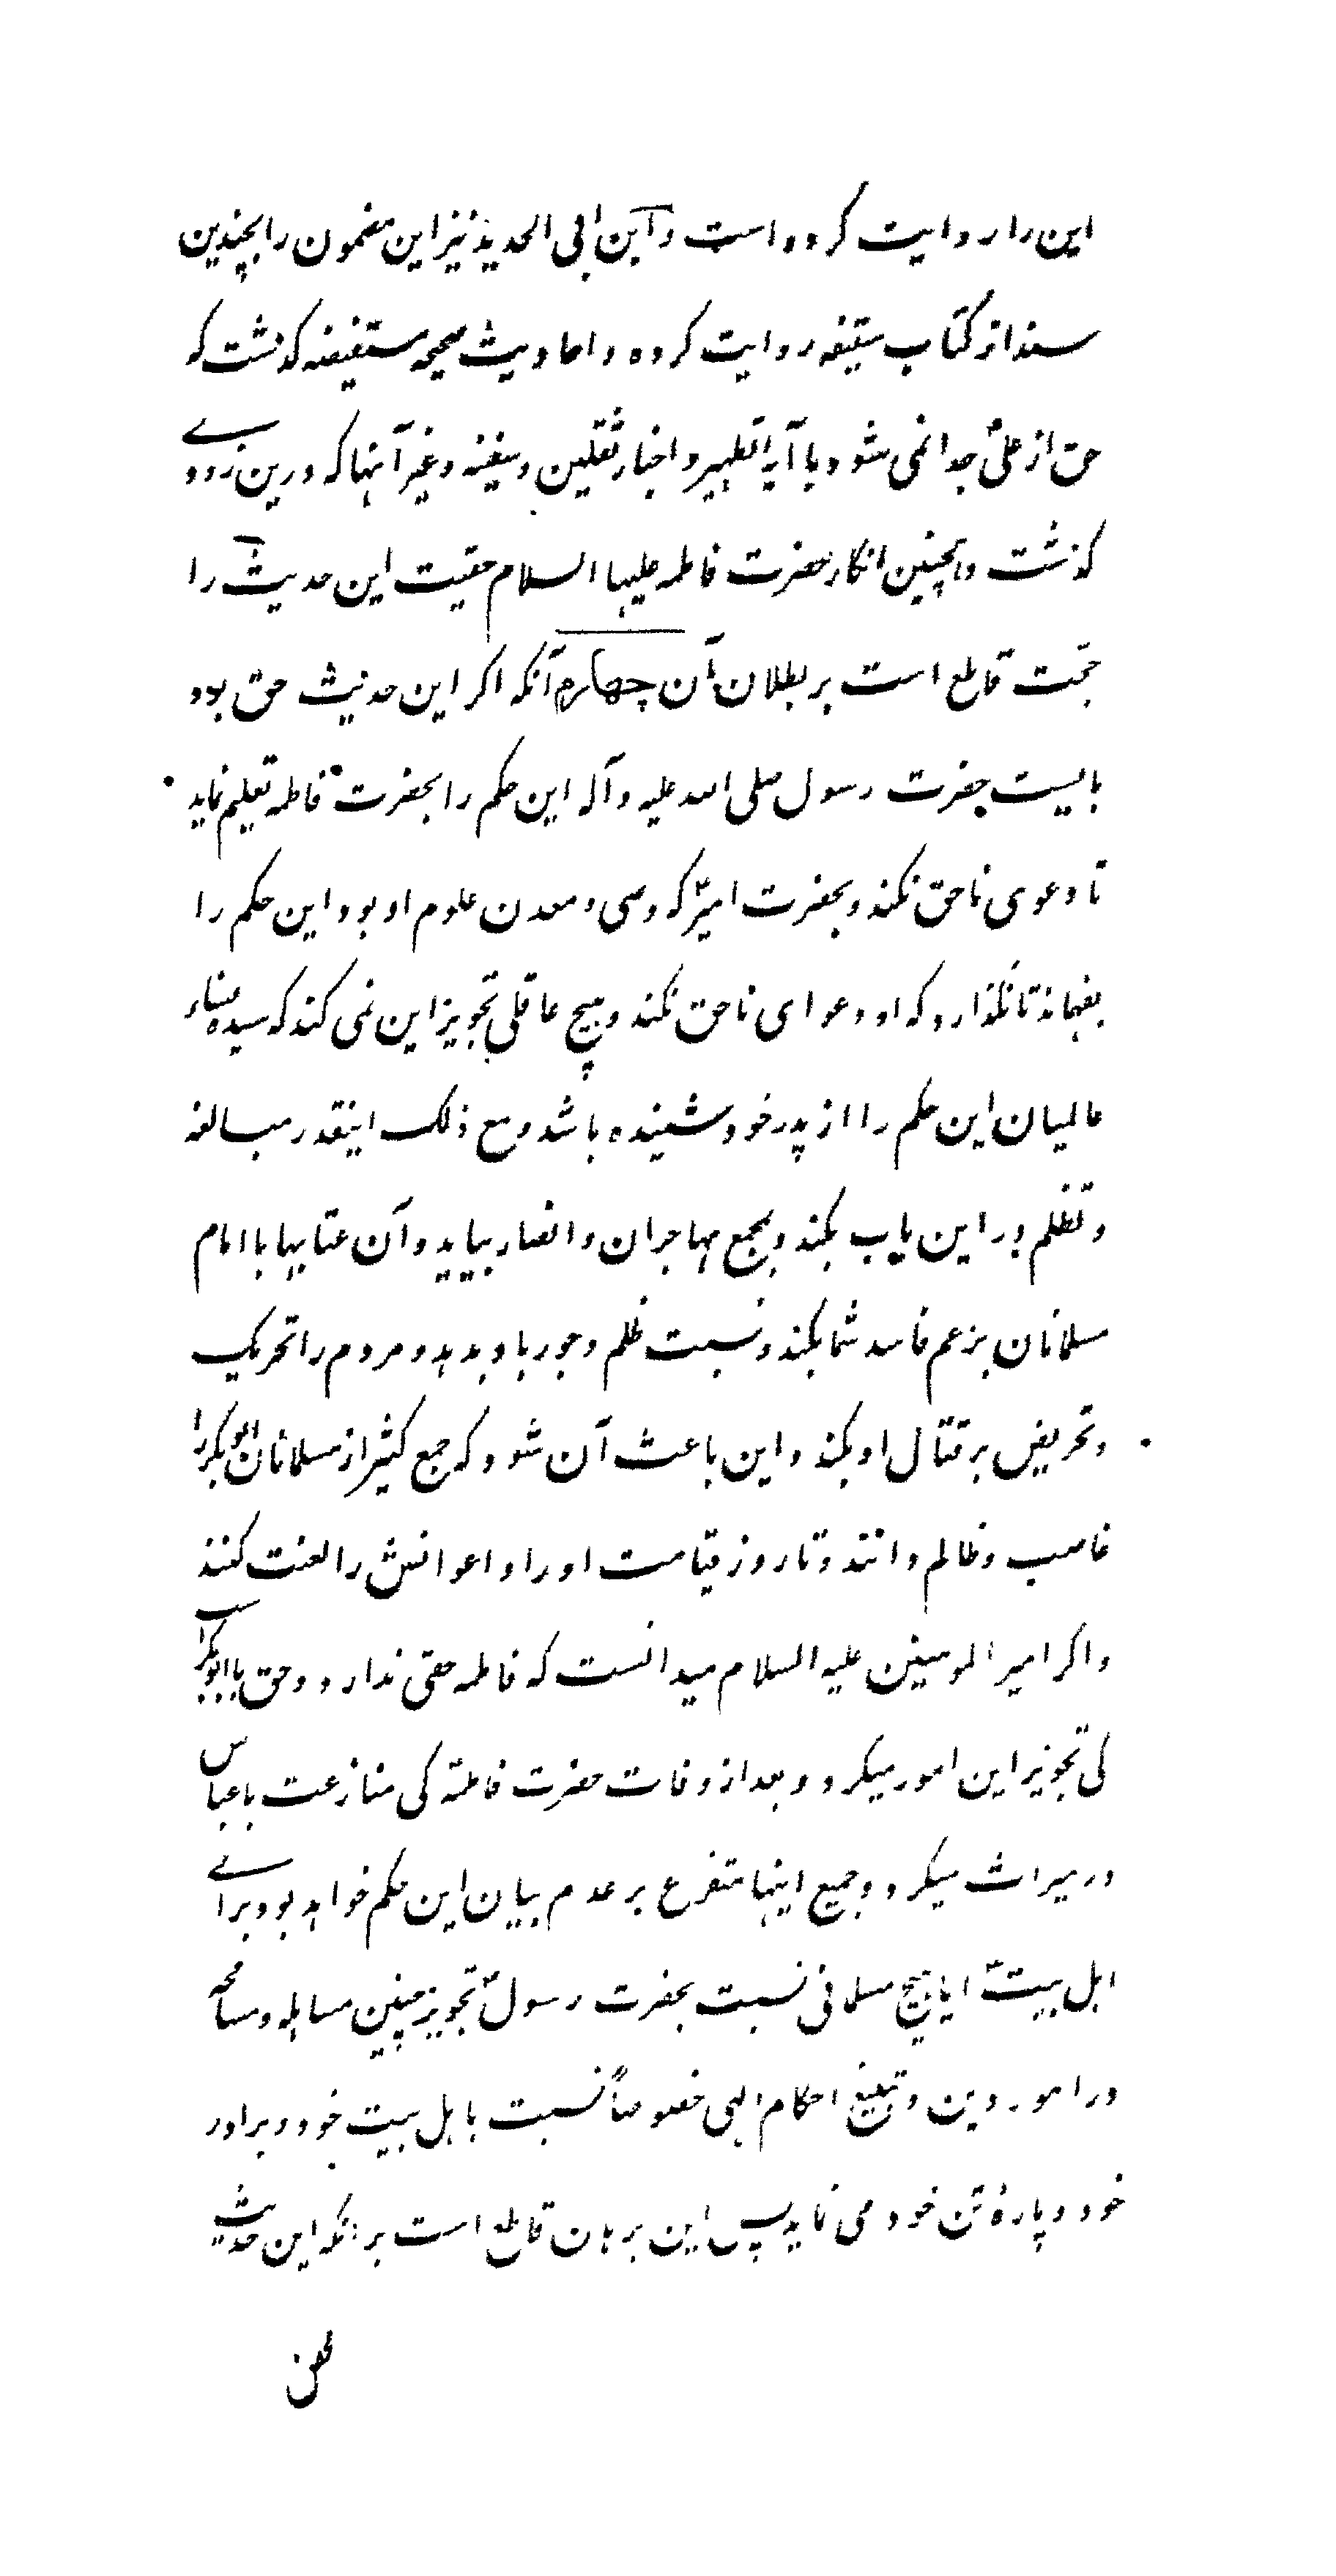 این را روایت کرده است و ابن ابی الحدید نیز این مضمون را بچندین
سند از کتاب سقیفه روایت کرده و احادیث صحیحه مستفیضه کذشت که
حق از علی جدا نمی شود با آیه تطهیر و اخبار ثقلین و سفینه و غیر آنها که درین نزدیکی
کذشت و همچنین انکار حضرت فاطمه علیها السلام حقیت این حدیث را
حجّت قاطع است بر بطلان آن چهارم آنکه اکر این حدیث حق بود
بایست حضرت رسول صلی الله علیه و آله این حکم را بحضرت فاطمه تعلیم نماید
تا دعوی ناحق نکند و بحضرت امیرؑ که وصی و معدن علوم او بود این حکم را
بفهماند تا نکذارد که او دعوای ناحق نکند و هیچ عاقلی تجویز این نمی کند که سیده نساء
عالمیان این حکم را از پدر خود شنیده باشد و مع ذلک اینقدر مبالغه
و تظلم در این باب بکند و بمجمع مهاجران و انصار بیاید و آن عتابها با امام
مسلمانان بزعم فاسد شما بکند و نسبت ظلم و جور باو بدهد و مردم را تحریک
و تحریض بر قتال او بکند و این باعث آن شود که جمع کثیر از مسلمانان ابو بکر را
غاصب و ظالم دانند و تا روز قیامت او را و اعوانش را لعنت کنند
و اکر امیر المومنین علیه السلام میدانست که فاطمه حقی ندارد و حق با ابوبکر است
کی تجویز این امور میکرد و بعد از وفات حضرت فاطمهؑ کی منازعت با عباس
در میراث میکرد و جمیع اینها متفرع بر عدم بیان این حکم خواهد بود برای
اهل بیتؑ ایا هیچ مسلمانی نسبت بحضرت رسولؐ تجویز چنین مساهله و مسامحه
در امور دین و تبلیغ احکام الهی خصوصاً نسبت باهل بیت خود و برادر
خود و پارۀ تن خود می نماید پس این برهان قاطع است بر انکه این حدیث
محض